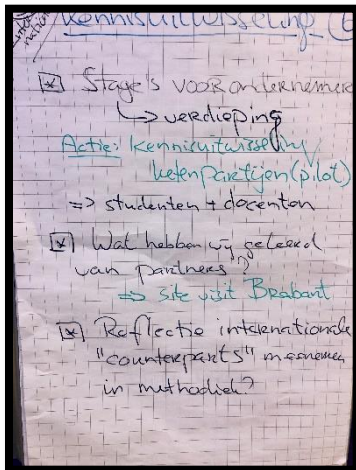 Inter
nation
kennisuitwisseling (6
[*] Stage's voor onternemers
↳ verdieping
Actie: kennisuitwisseling
ketenpartijen (pilot)
=> studenten + docenten
[*] Wat hebben wij geleerd
van partners?
=> site visit Brabant
[*] Reflectie internationale
"counterparts" meenemen
in methodiek?